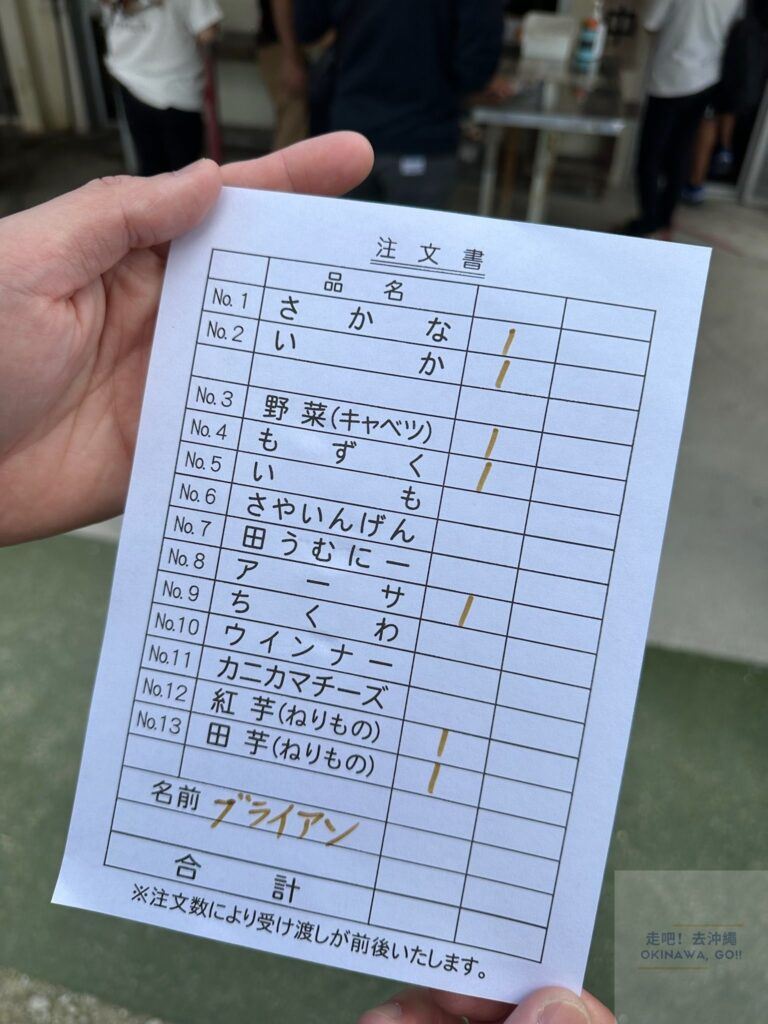 注文書
品名
No.1 さかな /
No.2 いか /
No.3 野菜(キャベツ) /
No.4 もずく /
No.5 いも
No.6 さやいんげん
No.7 田うむにー
No.8 アーサ /
No.9 ちくわ
No.10 ウインナー
No.11 カニカマチーズ
No.12 紅芋(ねりもの) /
No.13 田芋(ねりもの) /
名前 ブライアン
合計
※注文数により受け渡しが前後いたします。
走吧! 去沖繩
OKINAWA, GO!!